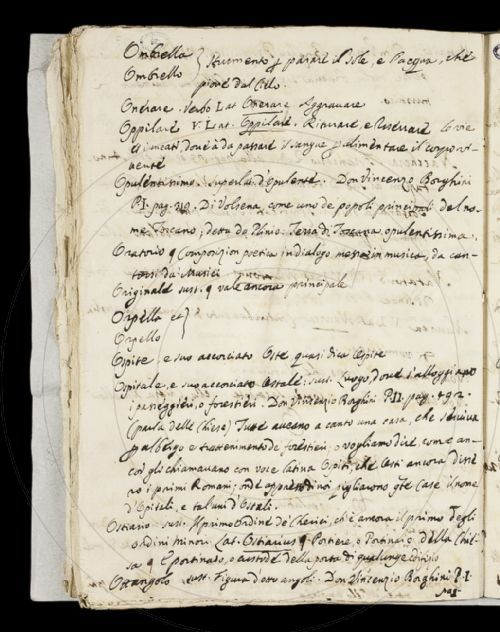 Ombrella
Ombrello } strumento p parare il Sole, e l'acqua, che
piove dal Cielo.
Onerare. Verbo Lat. Onerare. Aggravare
Oppilare V. Lat. Oppilare. Riturare, e riserrare le vie
e i meati dond'è da passare il sangue p alimentare il corpo vi-
vente
Opulentissimo. superlat. d'Opulente. Don Vincenzo Borghini
P.I. pag. Di Volsena, come uno de popoli principali del no-
me Toscano, detta da Plinio: Terra di Toscana opulentissima.
Oratorio q Composizion poetica in dialogo messa in musica, da can-
tarsi da Musici
Originale sust. q vale ancora principale
Orpella et }
Orpello
Ospite, e suo accorciato Oste quasi dica Ospite
Ospitale, e suo accorciato Ostale: sust. Luogo, dove s'alloggiano
i passeggieri, o forestieri. Don Vincenzio Borghini P.II. pag. 492.
(parla delle Chiese) Tutte aveano a canto una casa, che serviva
p albergo e trattenimento de forestieri, o vogliamo dire come an-
cor gli chiamavano con voce latina Ospiti, che Osti ancora disse-
ro i primi Romani; onde appresso di noi pigliarono qte Case il nome
d'Spitali, e taluni d'Ostali.
Ostiario. sust. Il primo Ordine de' Cherici, ch'è ancora il primo degli
ordini minori. Lat. Ostiarius q Portiere, o Portinaio della Chie-
sa q Portinaio, o custode della porta di qualunque edifizio
Ottangolo sust. Figura d'otto angoli. Don Vincenzio Borghini P.I.
pag.